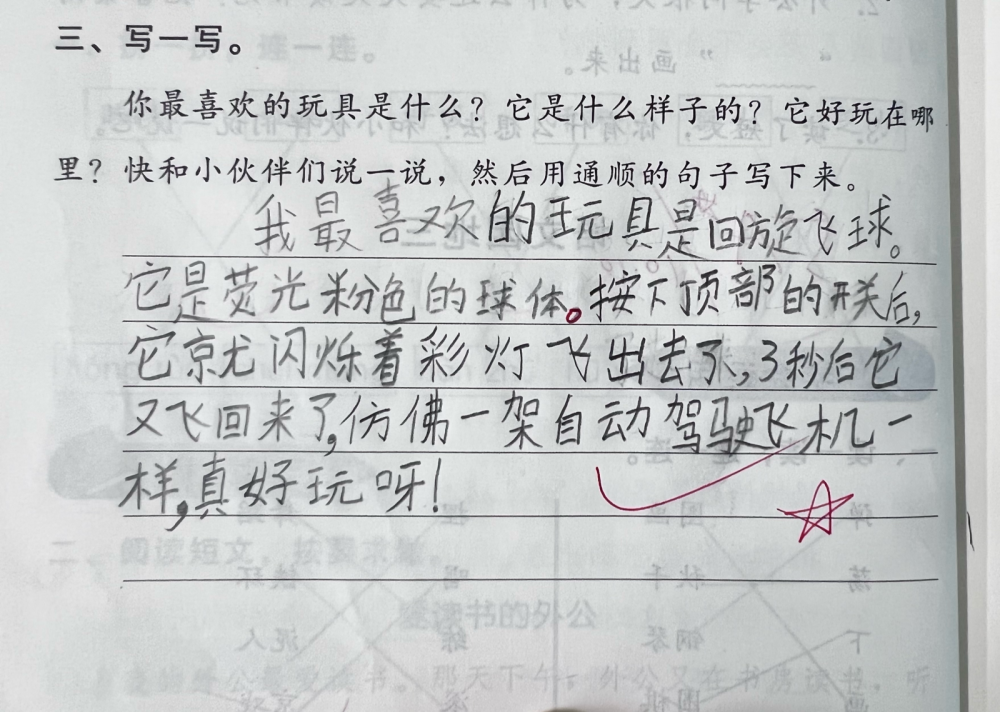 三、写一写。
你最喜欢的玩具是什么？它是什么样子的？它好玩在哪
里？快和小伙伴们说一说，然后用通顺的句子写下来。
我最喜欢的玩具是回旋飞球。
它是荧光粉色的球体。按下顶部的开关后，
它就闪烁着彩灯飞出去了，3秒后它
又飞回来了，仿佛一架自动驾驶飞机一
样，真好玩呀！